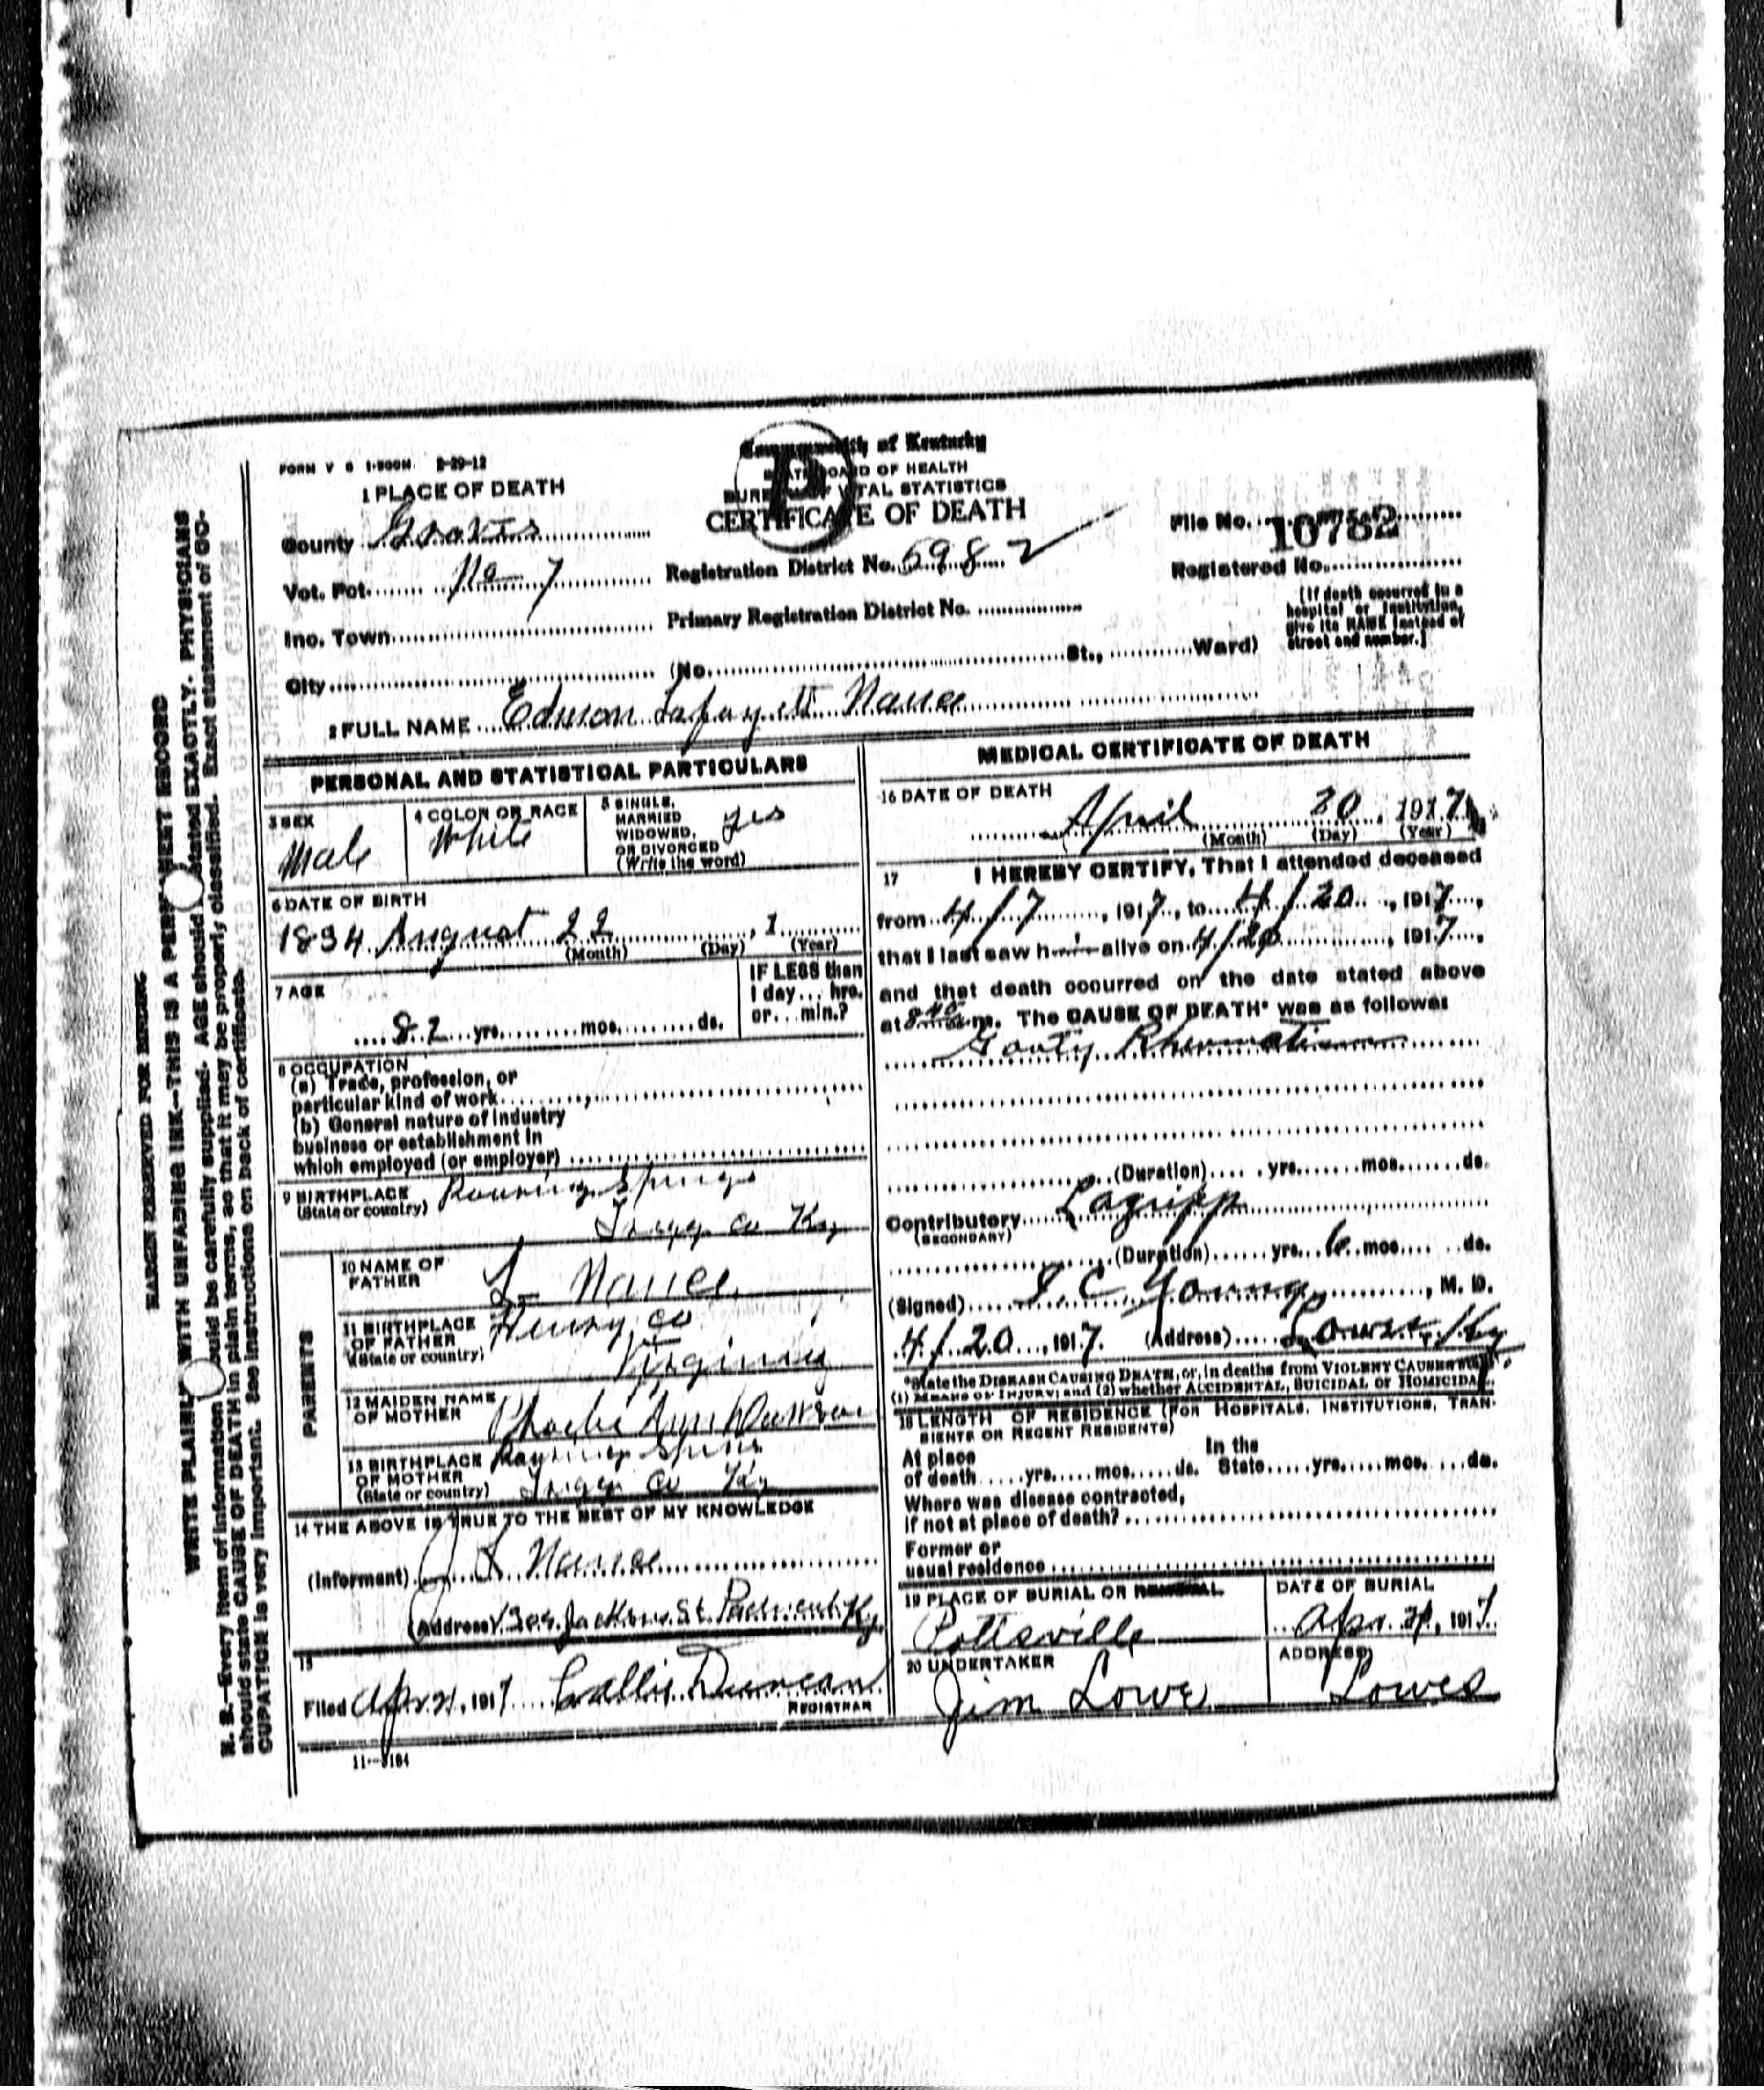 FORM V S 1-500M 2-29-12
Commonwealth of Kentucky
STATE BOARD OF HEALTH
BUREAU OF VITAL STATISTICS
CERTIFICATE OF DEATH
1 PLACE OF DEATH
County Graves
Vot. Pct. No 7
Registration District No. 698 2
File No. 10782
Registered No.
Inc. Town
Primary Registration District No.
(If death occurred in a
hospital or institution,
give its NAME instead of
street and number.)
City (No. St., Ward)
2 FULL NAME Edmon Lafayett Nance
PERSONAL AND STATISTICAL PARTICULARS
3 SEX
Male
4 COLOR OR RACE
White
5 SINGLE,
MARRIED
WIDOWED,
OR DIVORCED
(Write the word)
yes
6 DATE OF BIRTH
1834 August 22, 1
(Month) (Day) (Year)
7 AGE
82 yrs. mos. ds.
IF LESS than
1 day... hrs.
or... min.?
8 OCCUPATION
(a) Trade, profession, or
particular kind of work
(b) General nature of industry
business or establishment in
which employed (or employer)
9 BIRTHPLACE
(State or country)
Roaring Springs
Trigg co Ky
PARENTS
10 NAME OF
FATHER
Nance
11 BIRTHPLACE
OF FATHER
(State or country)
Henry co
Virginia
12 MAIDEN NAME
OF MOTHER
Phoebe Ann Dawson
13 BIRTHPLACE
OF MOTHER
(State or country)
Roaring Spring
Trigg co Ky
14 THE ABOVE IS TRUE TO THE BEST OF MY KNOWLEDGE
(Informant) J L Nance
(Address) Jackson St. Paducah Ky
15
Filed Apr 21, 1917 Callie Duncan
REGISTRAR
11--3184
MEDICAL CERTIFICATE OF DEATH
16 DATE OF DEATH
April 20, 1917
(Month) (Day) (Year)
17 I HEREBY CERTIFY, That I attended deceased
from 4/7, 1917, to 4/20, 1917,
that I last saw him alive on 4/20, 1917,
and that death occurred on the date stated above
at 8 40 a m. The CAUSE OF DEATH* was as follows:
Gouty Rheumatism
(Duration) yrs. mos. ds.
Contributory Lagripp
(SECONDARY)
(Duration) yrs. 6 mos. ds.
(Signed) C Young, M. D.
4/20, 1917. (Address) Lowes, Ky
*State the DISEASE CAUSING DEATH, or, in deaths from VIOLENT CAUSES state
(1) MEANS OF INJURY; and (2) whether ACCIDENTAL, SUICIDAL or HOMICIDAL.
18 LENGTH OF RESIDENCE (FOR HOSPITALS, INSTITUTIONS, TRAN-
SIENTS OR RECENT RESIDENTS)
At place
of death yrs. mos. ds.
In the
State yrs. mos. ds.
Where was disease contracted,
if not at place of death?
Former or
usual residence
19 PLACE OF BURIAL OR REMOVAL
Pottsville
DATE OF BURIAL
Apr. 21, 1917
20 UNDERTAKER
Jim Lowe
ADDRESS
Lowes
MARGIN RESERVED FOR BINDING
WRITE PLAINLY WITH UNFADING INK--THIS IS A PERMANENT RECORD
N. B.--Every item of information should be carefully supplied. AGE should be stated EXACTLY. PHYSICIANS
should state CAUSE OF DEATH in plain terms, so that it may be properly classified. Exact statement of OC-
CUPATION is very important. See instructions on back of certificate.